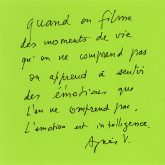 quand on filme
des moments de vie
qu'on ne comprend pas
on apprend à sentir
des émotions que
l'on ne comprend pas.
L'émotion est intelligence.
Agnès V.